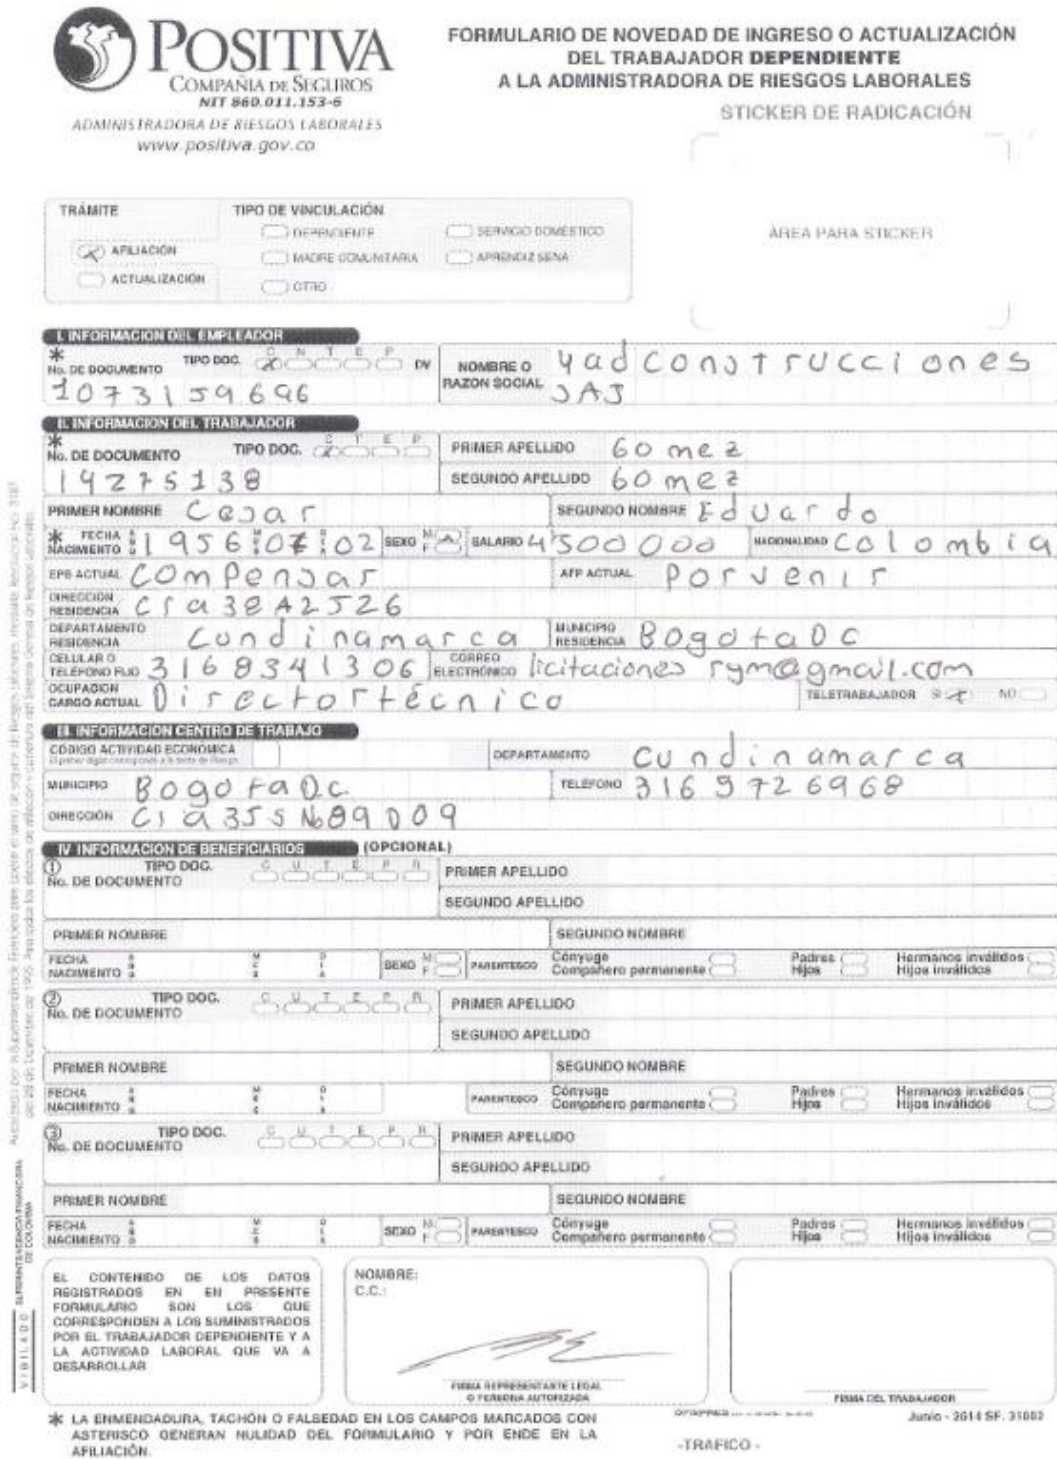 POSITIVA
COMPAÑIA DE SEGUROS
NIT 860.011.153-6
ADMINISTRADORA DE RIESGOS LABORALES
www.positiva.gov.co
FORMULARIO DE NOVEDAD DE INGRESO O ACTUALIZACIÓN
DEL TRABAJADOR DEPENDIENTE
A LA ADMINISTRADORA DE RIESGOS LABORALES
STICKER DE RADICACIÓN
ÁREA PARA STICKER
TRÁMITE
AFILIACIÓN
ACTUALIZACIÓN
TIPO DE VINCULACIÓN
DEPENDIENTE
SERVICIO DOMÉSTICO
MADRE COMUNITARIA
APRENDIZ SENA
OTRO
I. INFORMACION DEL EMPLEADOR
* No. DE DOCUMENTO TIPO DOC. C N T E P DV
1073159696
NOMBRE O RAZON SOCIAL yad construcciones
SAS
II. INFORMACION DEL TRABAJADOR
* No. DE DOCUMENTO TIPO DOC. C T E P
14275138
PRIMER APELLIDO Gomez
SEGUNDO APELLIDO Gomez
PRIMER NOMBRE Cesar SEGUNDO NOMBRE Eduardo
* FECHA NACIMIENTO AÑO 1956 MES 07 DIA 02 SEXO M F SALARIO 4'500000 NACIONALIDAD Colombia
EPS ACTUAL Compensar AFP ACTUAL Porvenir
DIRECCIÓN RESIDENCIA Cra38A2526
DEPARTAMENTO RESIDENCIA Cundinamarca MUNICIPIO RESIDENCIA BogotaDC
CELULAR O TELEFONO FIJO 3168341306 CORREO ELECTRÓNICO licitaciones rym@gmail.com
OCUPACION CARGO ACTUAL Directortécnico TELETRABAJADOR SI NO
III. INFORMACION CENTRO DE TRABAJO
CÓDIGO ACTIVIDAD ECONÓMICA
DEPARTAMENTO Cundinamarca
MUNICIPIO BogotaDC TELÉFONO 3169726968
DIRECCIÓN Cra35SN89D09
IV INFORMACION DE BENEFICIARIOS (OPCIONAL)
① TIPO DOC. C U T E P R
No. DE DOCUMENTO
PRIMER APELLIDO
SEGUNDO APELLIDO
PRIMER NOMBRE SEGUNDO NOMBRE
FECHA NACIMIENTO AÑO MES DIA SEXO M F PARENTESCO Cónyuge Compañero permanente Padres Hijos Hermanos inválidos Hijos inválidos
② TIPO DOC. C U T E P R
No. DE DOCUMENTO
PRIMER APELLIDO
SEGUNDO APELLIDO
PRIMER NOMBRE SEGUNDO NOMBRE
FECHA NACIMIENTO AÑO MES DIA PARENTESCO Cónyuge Compañero permanente Padres Hijos Hermanos inválidos Hijos inválidos
③ TIPO DOC. C U T E P R
No. DE DOCUMENTO
PRIMER APELLIDO
SEGUNDO APELLIDO
PRIMER NOMBRE SEGUNDO NOMBRE
FECHA NACIMIENTO AÑO MES DIA SEXO M F PARENTESCO Cónyuge Compañero permanente Padres Hijos Hermanos inválidos Hijos inválidos
EL CONTENIDO DE LOS DATOS
REGISTRADOS EN EN PRESENTE
FORMULARIO SON LOS QUE
CORRESPONDEN A LOS SUMINISTRADOS
POR EL TRABAJADOR DEPENDIENTE Y A
LA ACTIVIDAD LABORAL QUE VA A
DESARROLLAR
NOMBRE:
C.C.:
FIRMA REPRESENTANTE LEGAL
O PERSONA AUTORIZADA
FIRMA DEL TRABAJADOR
* LA ENMENDADURA, TACHÓN O FALSEDAD EN LOS CAMPOS MARCADOS CON
ASTERISCO GENERAN NULIDAD DEL FORMULARIO Y POR ENDE EN LA
AFILIACIÓN.
Junio - 2014 SF. 31002
-TRAFICO -
VIGILADO SUPERINTENDENCIA FINANCIERA DE COLOMBIA